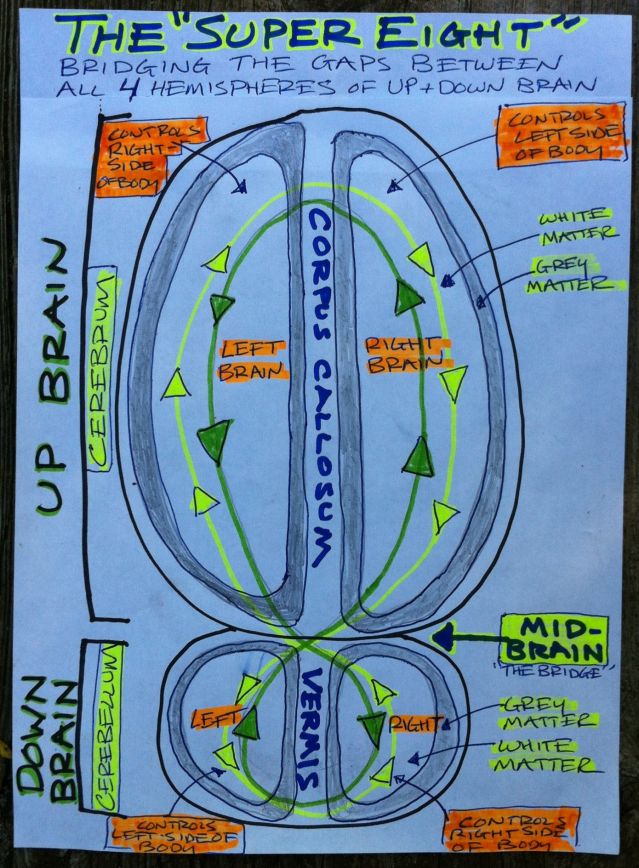 THE "SUPER EIGHT"
BRIDGING THE GAPS BETWEEN
ALL 4 HEMISPHERES OF UP + DOWN BRAIN
CONTROLS
RIGHT-
SIDE
OF BODY
CONTROLS
LEFT SIDE
OF BODY
WHITE
MATTER
GREY
MATTER
UP BRAIN
CEREBRUM
LEFT
BRAIN
CORPUS CALLOSUM
RIGHT
BRAIN
MID-
BRAIN
"THE BRIDGE"
DOWN
BRAIN
CEREBELLUM
LEFT
VERMIS
RIGHT
GREY
MATTER
WHITE
MATTER
CONTROLS
LEFT-SIDE OF
BODY
CONTROLS
RIGHT SIDE
OF BODY